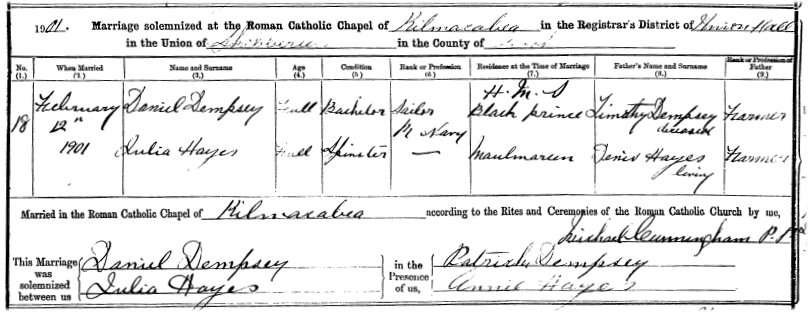 1901. Marriage solemnized at the Roman Catholic Chapel of Kilmacabea in the Registrar's District of Union Hall
in the Union of Skibbereen in the County of Cork
No. (1.) When Married (2.) Name and Surname (3.) Age (4.) Condition (5.) Rank or Profession (6.) Residence at the Time of Marriage (7.) Father's Name and Surname (8.) Rank or Profession of Father (9.)
18 February 12" 1901 Daniel Dempsey Full Bachelor Sailor R. Navy H.M.S Black prince Timothy Dempsey diseased Farmer
Julia Hayes Full Spinster — Maulmareen Denis Hayes living Farmer
Married in the Roman Catholic Chapel of Kilmacabea according to the Rites and Ceremonies of the Roman Catholic Church by me,
Michael Cunningham P.P.
This Marriage was solemnized between us Daniel Dempsey Julia Hayes in the Presence of us, Patrick Dempsey Annie Hayes